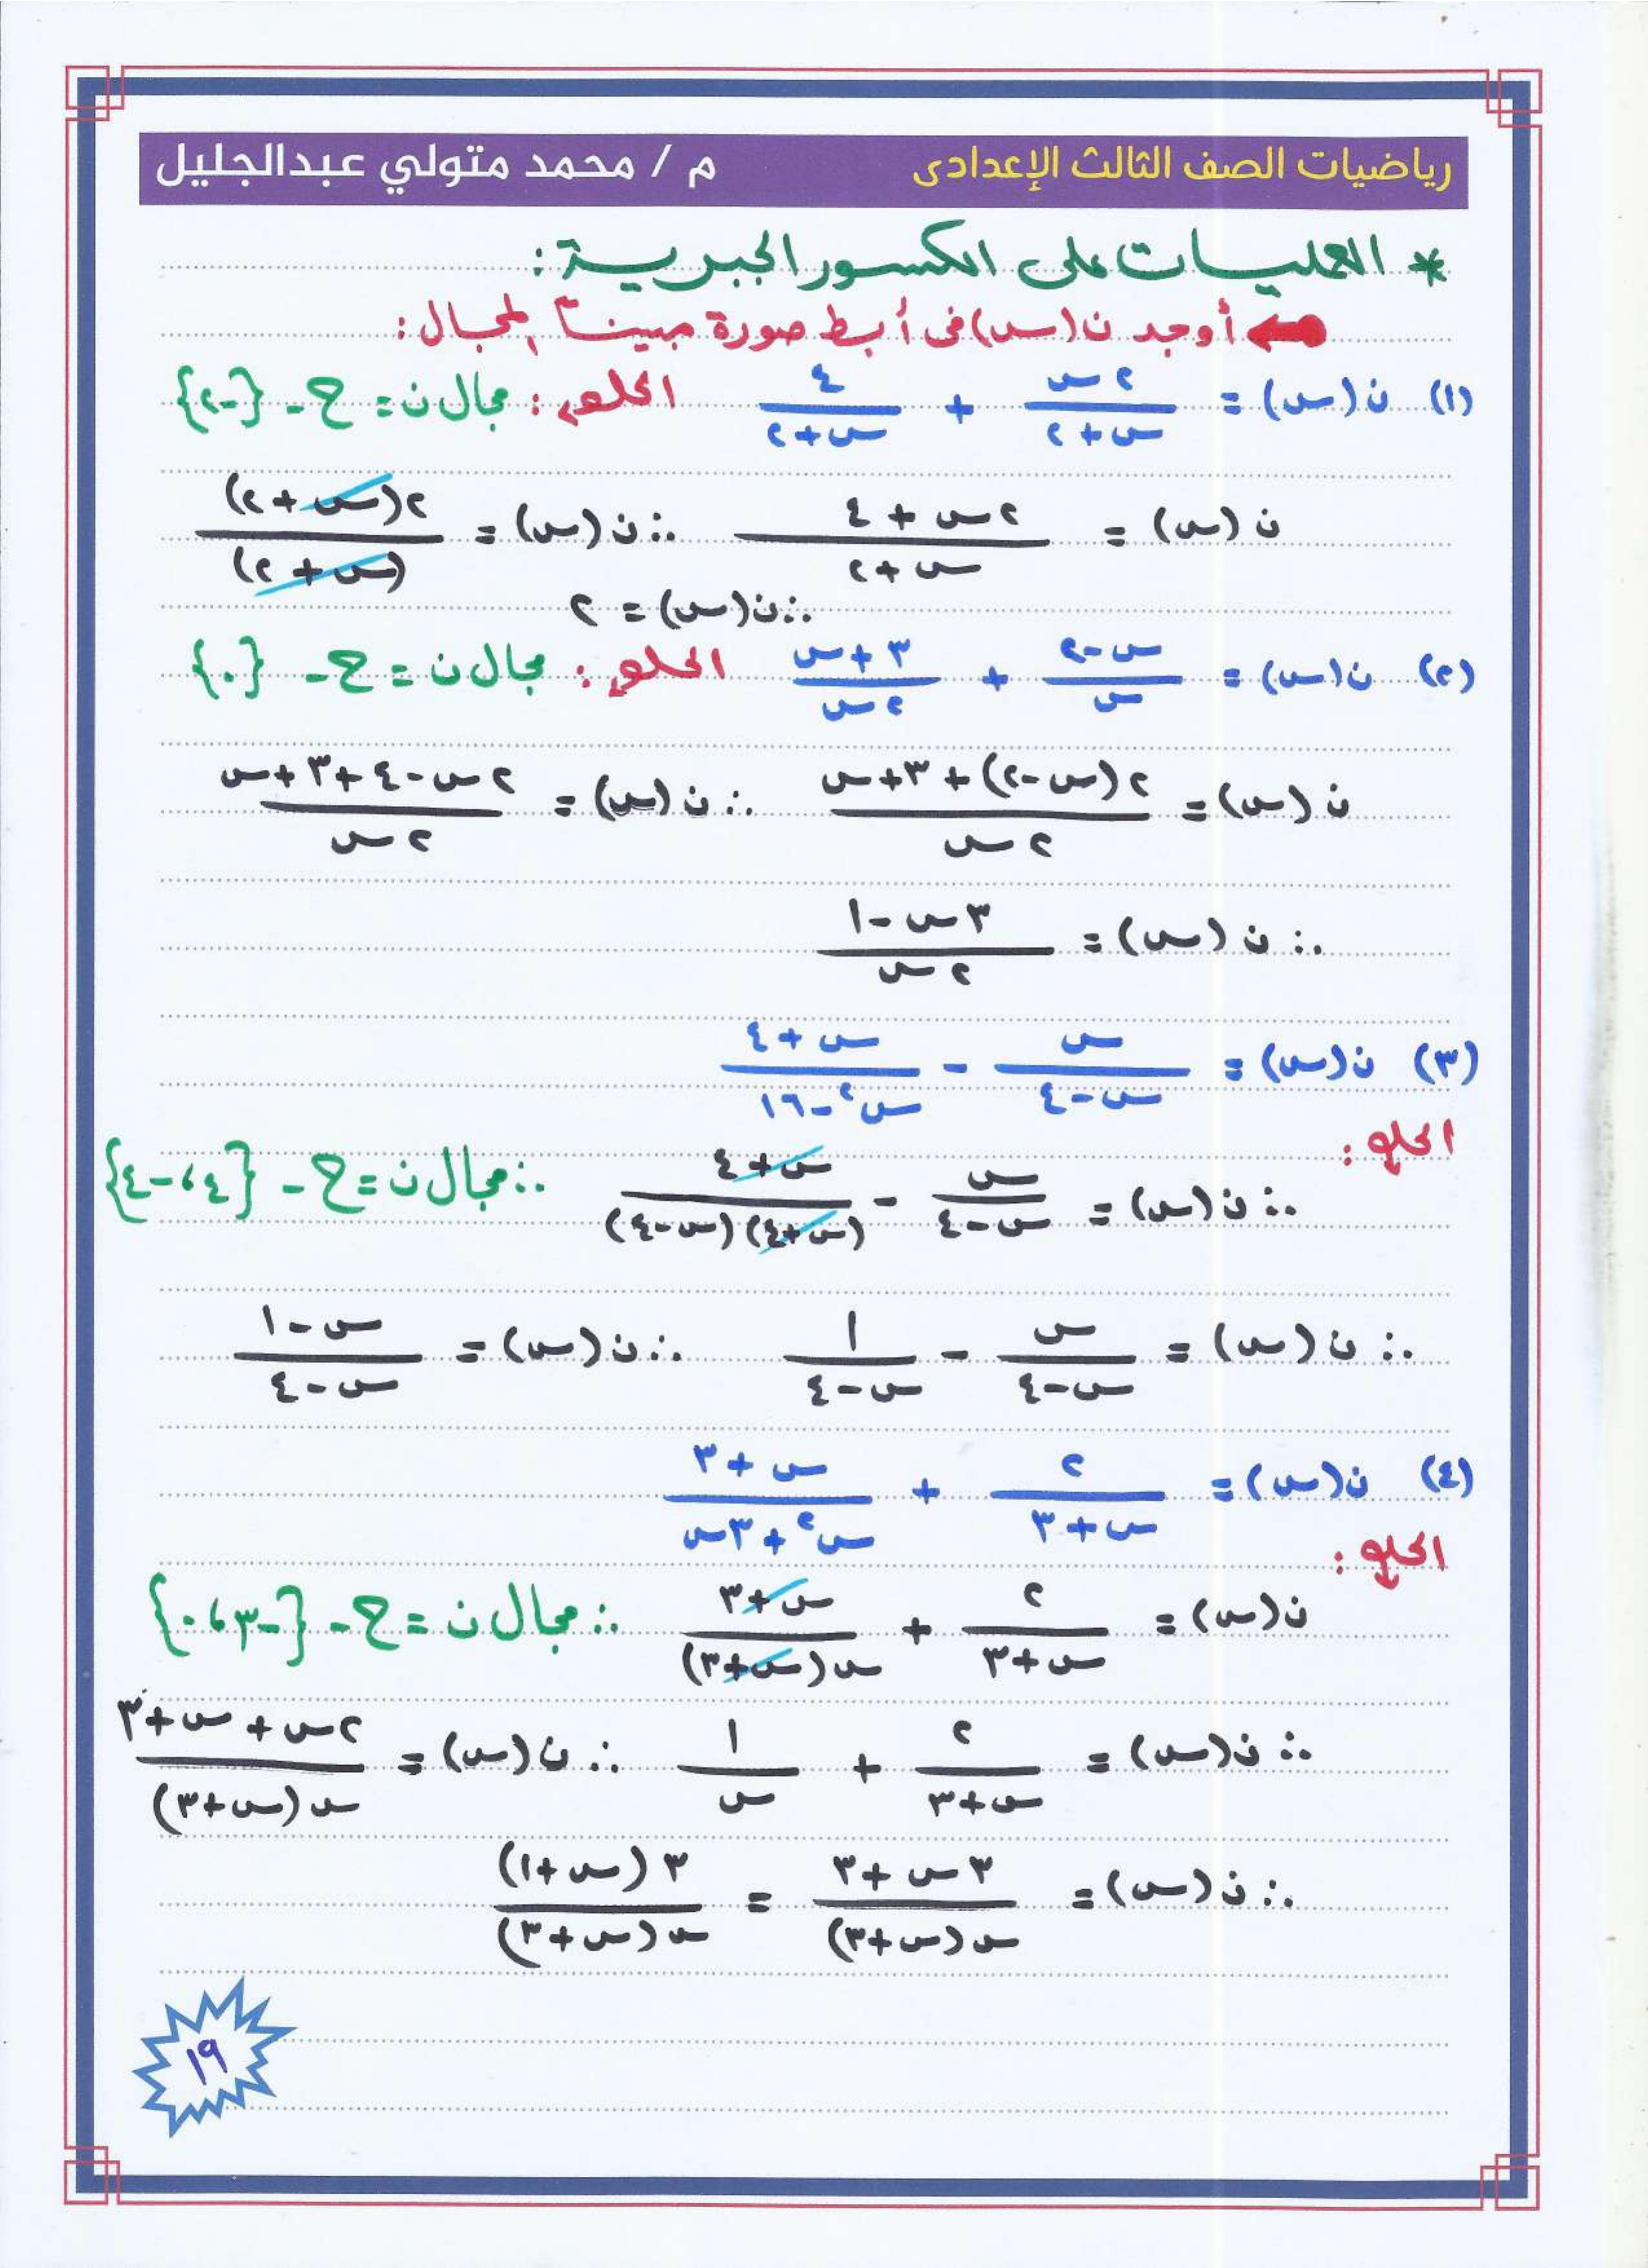 رياضيات الصف الثالث الإعدادى م / محمد متولي عبدالجليل
* العمليات على الكسور الجبرية :
أوجد ن(س) فى أبسط صورة مبيناً المجال :
(١) ن(س) = ٢س / س+٢ + ٤ / س+٢ الحل : مجال ن = ح - {-٢}
ن(س) = ٢س + ٤ / س+٢ ∴ ن(س) = ٢(س+٢) / (س+٢)
∴ ن(س) = ٢
(٢) ن(س) = س-٢ / س + ٣+س / ٢س الحل : مجال ن = ح - {٠}
ن(س) = ٢(س-٢)+٣+س / ٢س ∴ ن(س) = ٢س-٤+٣+س / ٢س
∴ ن(س) = ٣س-١ / ٢س
(٣) ن(س) = س / س-٤ - س+٤ / س²-١٦
الحل :
∴ ن(س) = س / س-٤ - س+٤ / (س+٤)(س-٤) ∴ مجال ن = ح - {٤،-٤}
∴ ن(س) = س / س-٤ - ١ / س-٤ ∴ ن(س) = س-١ / س-٤
(٤) ن(س) = ٢ / س+٣ + س+٣ / س²+٣س
الحل :
ن(س) = ٢ / س+٣ + س+٣ / س(س+٣) ∴ مجال ن = ح - {-٣،٠}
∴ ن(س) = ٢ / س+٣ + ١ / س ∴ ن(س) = ٢س+س+٣ / س(س+٣)
∴ ن(س) = ٣س+٣ / س(س+٣) = ٣(س+١) / س(س+٣)
١٩